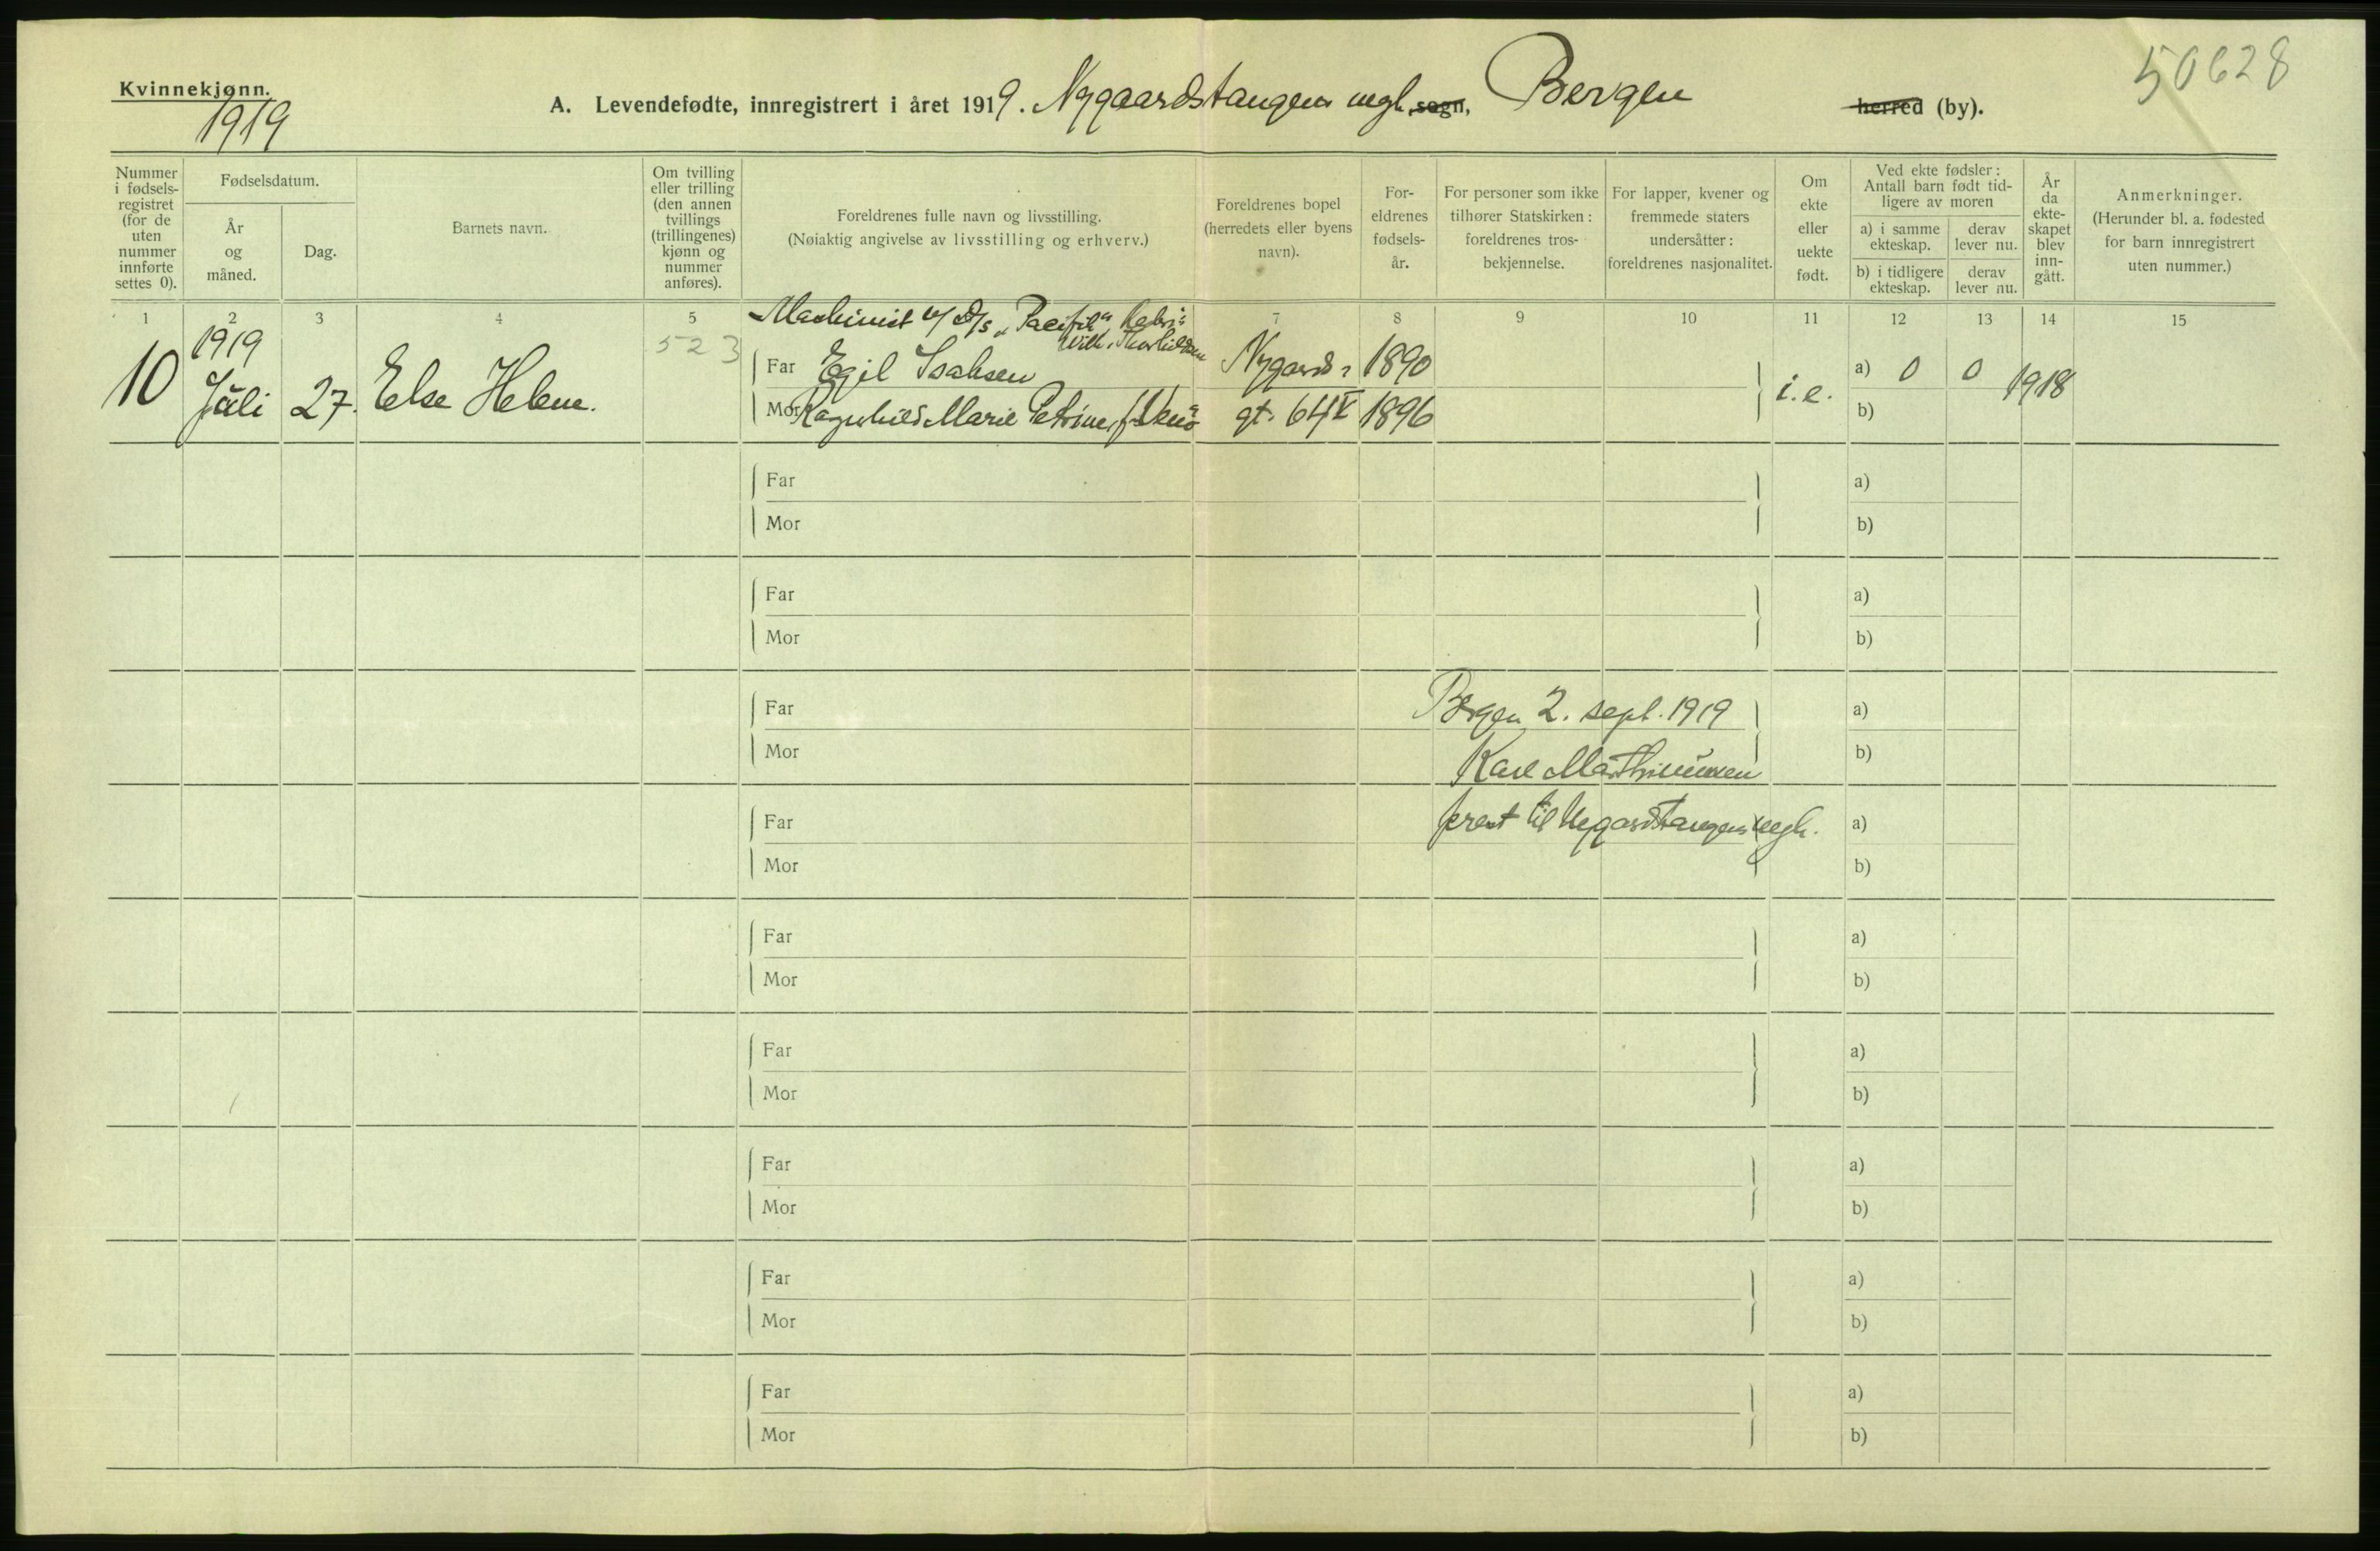 50628
Kvinnekjønn.
1919
A. Levendefødte, innregistrert i året 1919. Nygaardstangens megh. sogn, Bergen herred (by).
Nummer i fødsels-registret (for de uten nummer innførte settes 0).
Fødselsdatum.
År og måned.
Dag.
Barnets navn.
Om tvilling eller trilling (den annen tvillings (trillingenes) kjønn og nummer anføres).
Foreldrenes fulle navn og livsstilling.
(Nøiaktig angivelse av livsstilling og erhverv.)
Foreldrenes bopel (herredets eller byens navn).
For-eldrenes fødsels-år.
For personer som ikke tilhører Statskirken: foreldrenes tros-bekjennelse.
For lapper, kvener og fremmede staters undersåtter: foreldrenes nasjonalitet.
Om ekte eller uekte født.
Ved ekte fødsler: Antall barn født tid-ligere av moren
a) i samme ekteskap.
derav lever nu.
b) i tidligere ekteskap.
derav lever nu.
År da ekte-skapet blev inn-gått.
Anmerkninger.
(Herunder bl. a. fødested for barn innregistrert uten nummer.)
1 2 3 4 5 7 8 9 10 11 12 13 14 15
Maskinist D/S "Pacific"
Wilh.
523
10 1919 Juli 27. Else Helene.
Far Egil Isaksen Nygaards- 1890
Mor Ragnhild Marie Petrine gt. 64 1896
i.e.
a) 0 0 1918
b)
Far a)
Mor b)
Far a)
Mor b)
Far Bergen 2. sept. 1919 a)
Mor Karl Marthinussen b)
Far prest til Nygardstangens megh. a)
Mor b)
Far a)
Mor b)
Far a)
Mor b)
Far a)
Mor b)
Far a)
Mor b)
Far a)
Mor b)